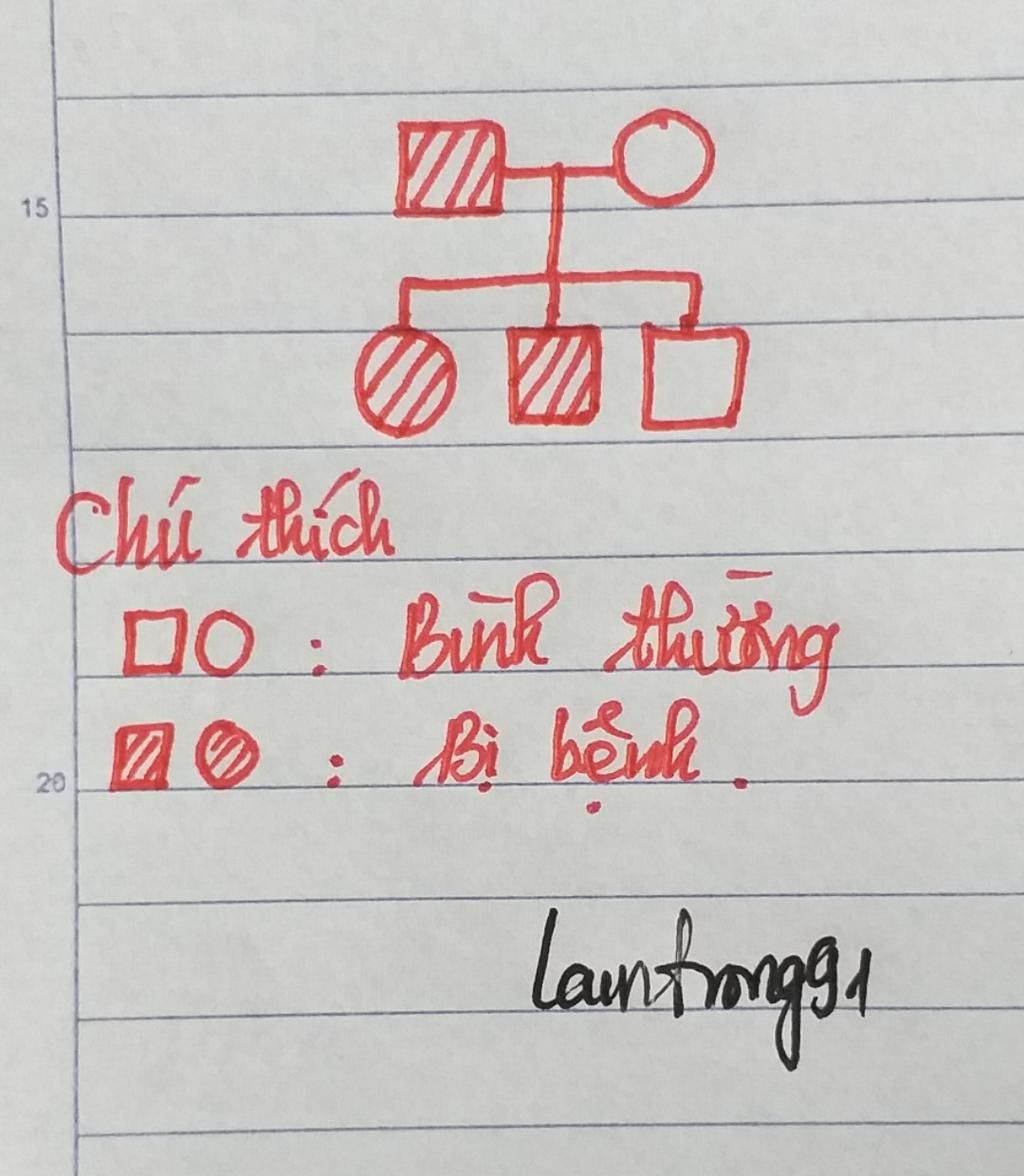 15
Chú thích
: Bình thường
: Bị bệnh.
20
lamtrong91